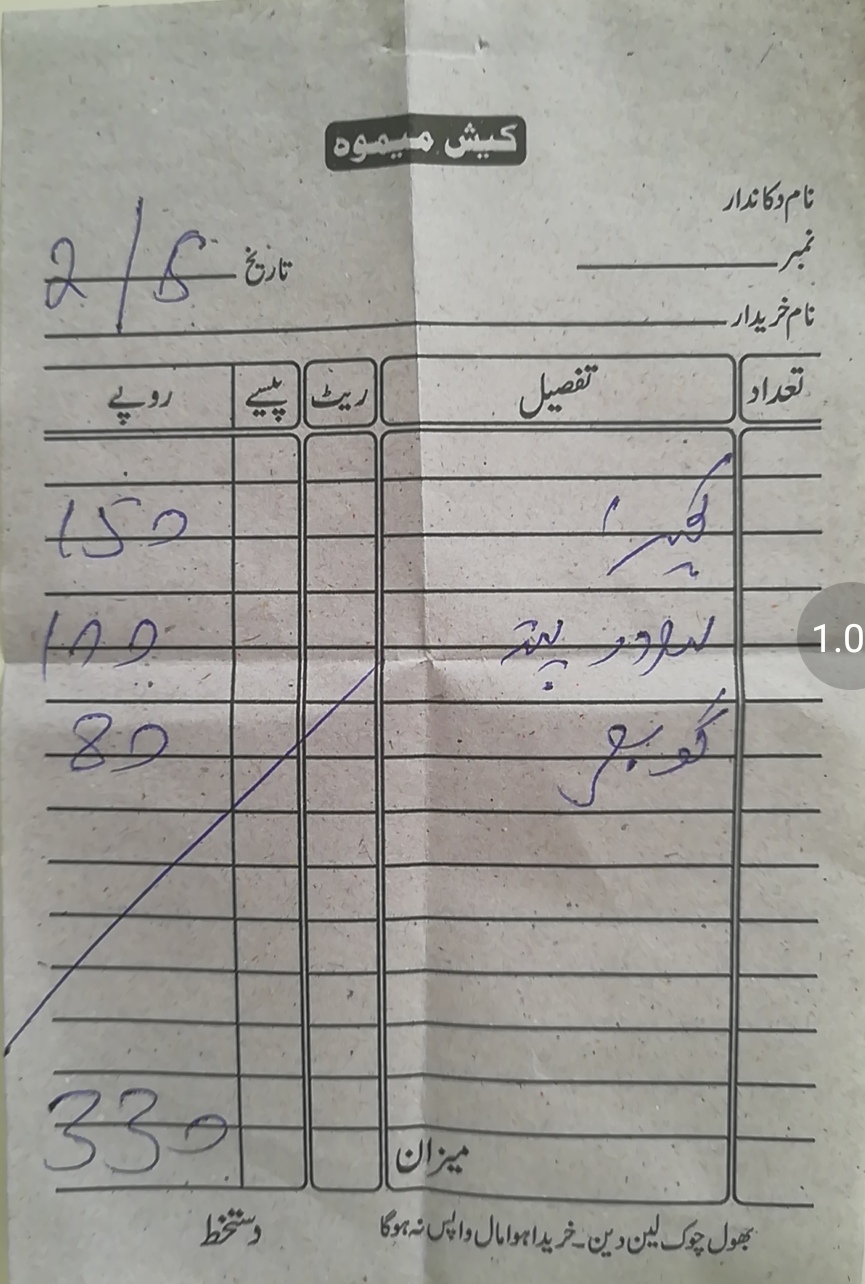 کیش میمو
نام دکاندار
نمبر
تاریخ 2/5
نام خریدار
تعداد تفصیل ریٹ پیسے روپے
کھیرا 150
پتہ 100
گوبھی 80
میزان 330
بھول چوک لین دین۔ خریدا ہوا مال واپس نہ ہوگا دستخط
1.0